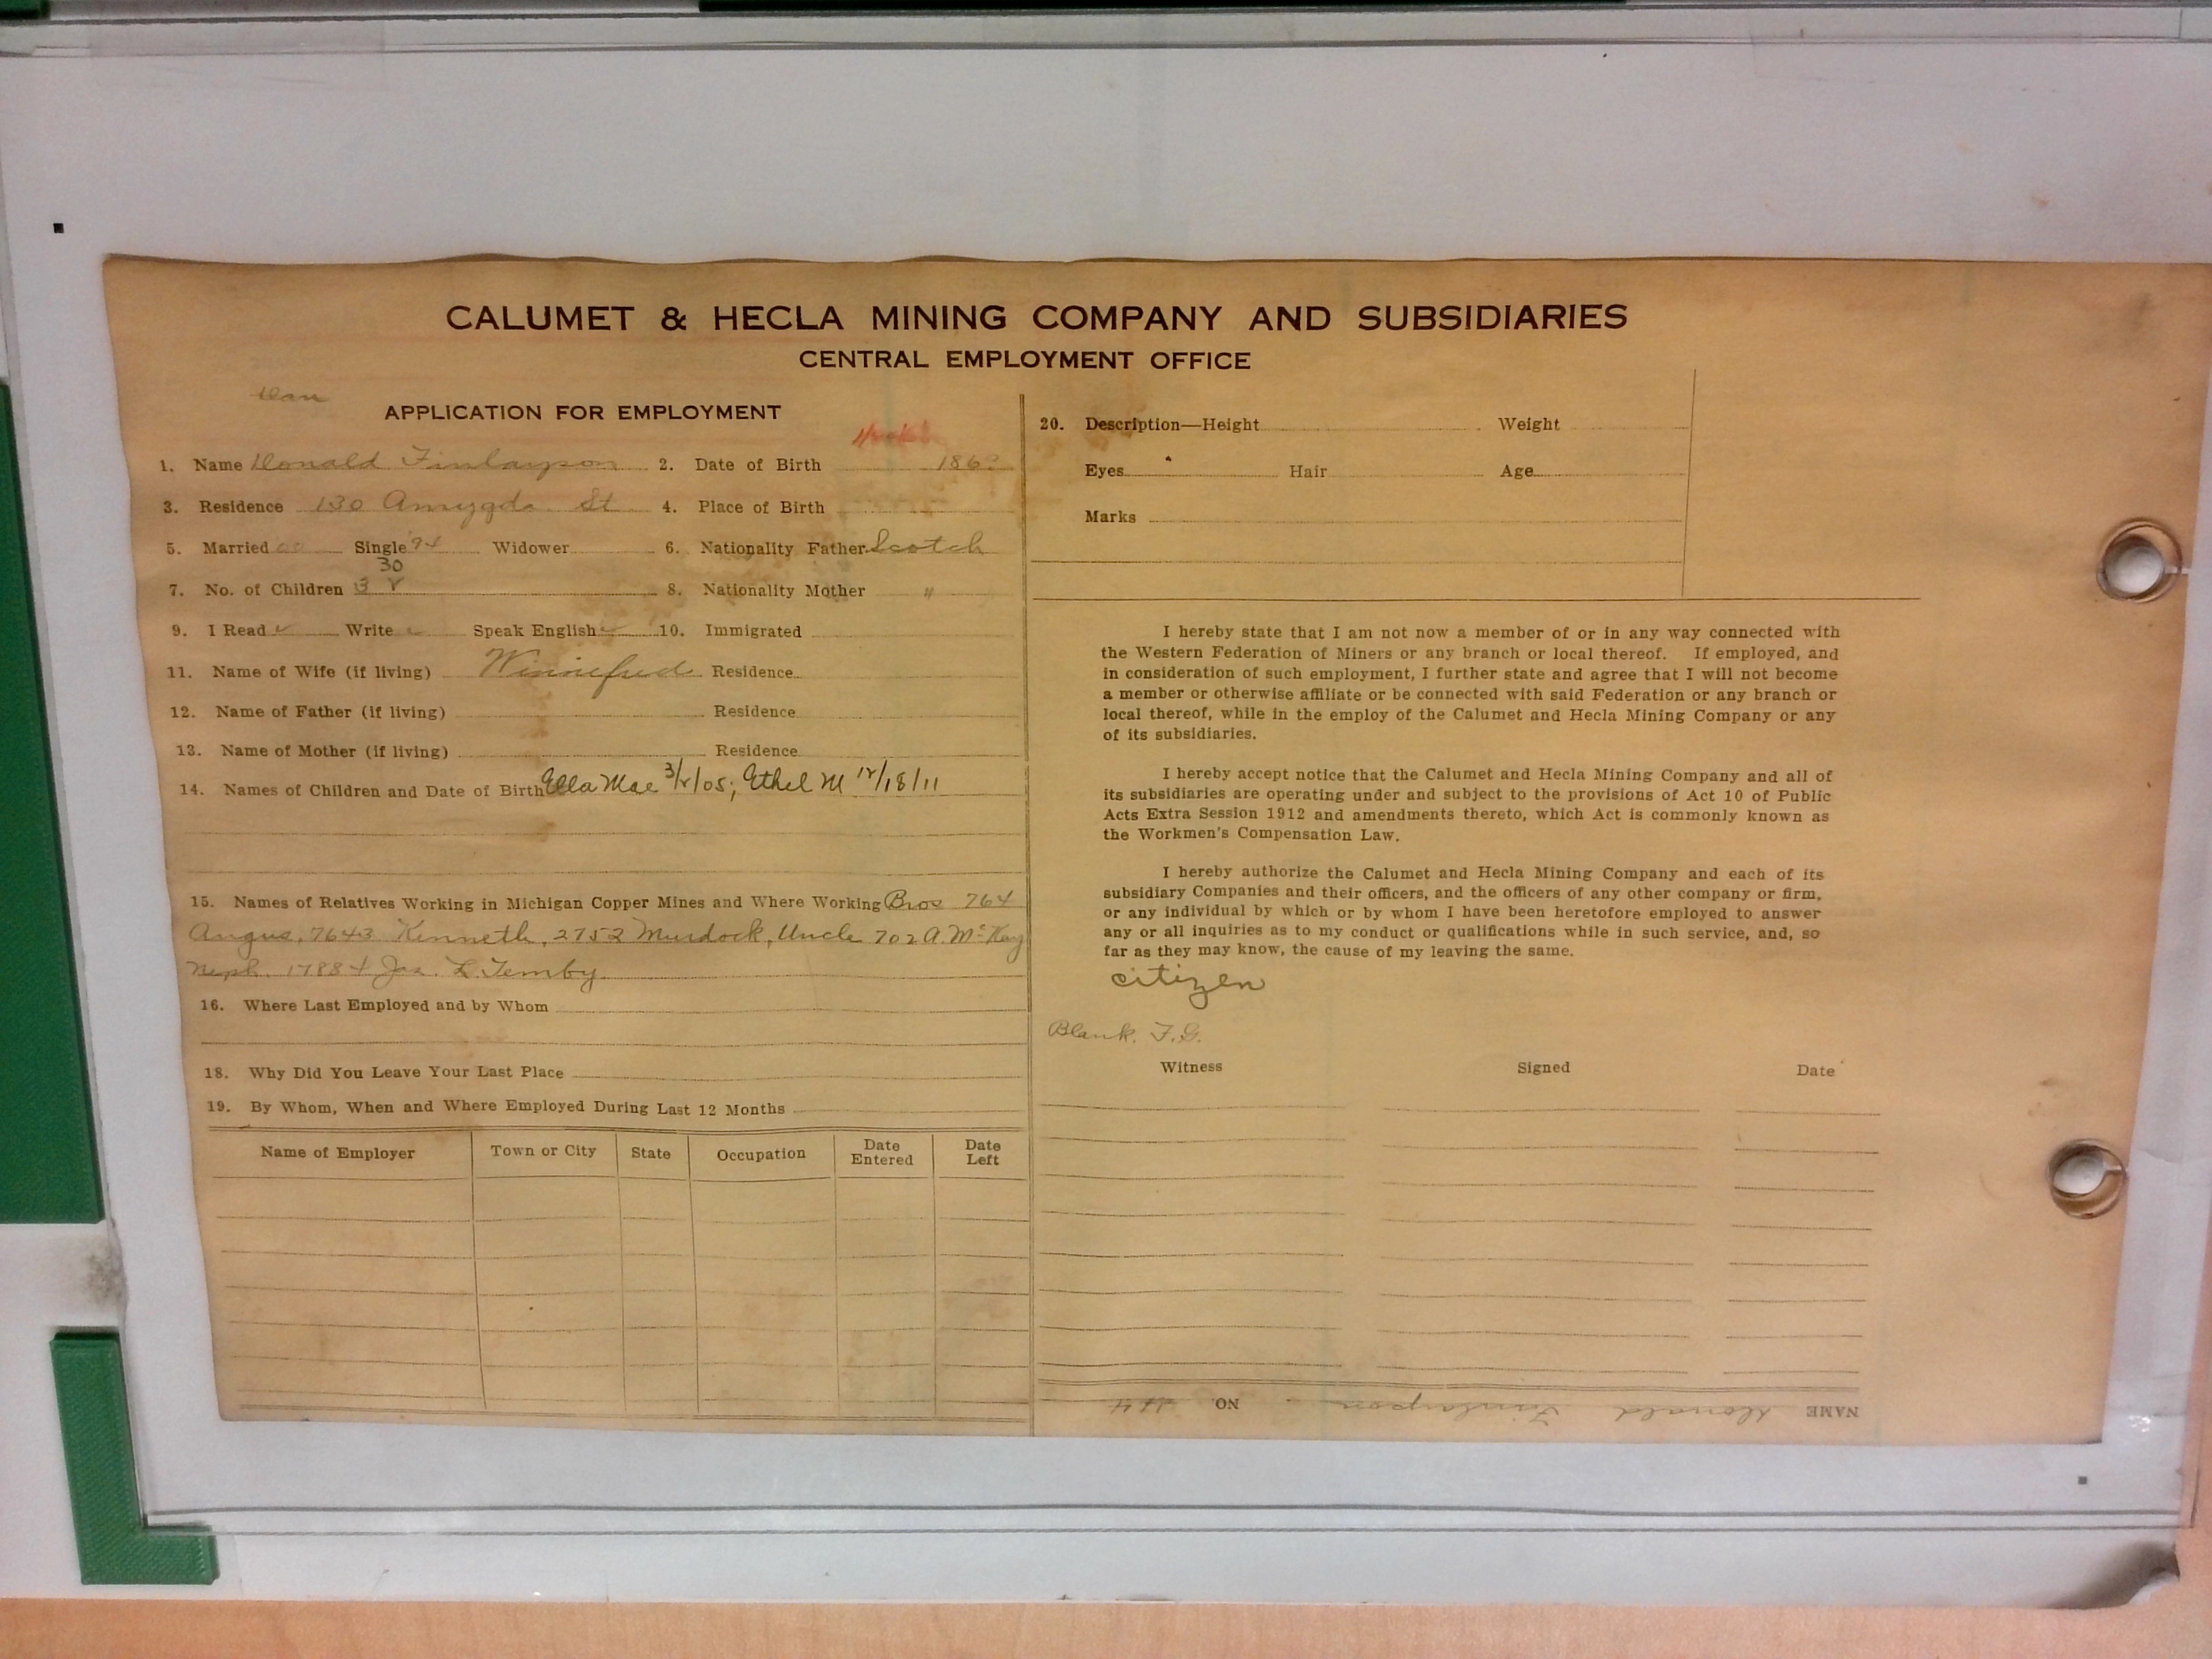 CALUMET & HECLA MINING COMPANY AND SUBSIDIARIES
CENTRAL EMPLOYMENT OFFICE
Dan
APPLICATION FOR EMPLOYMENT
1. Name Donald Finlayson 2. Date of Birth
3. Residence 130 Amygda. St 4. Place of Birth
5. Married Single '94 Widower 6. Nationality Father Scotch
30
7. No. of Children 3 8. Nationality Mother "
9. I Read ✓ Write ✓ Speak English ✓ 10. Immigrated
11. Name of Wife (if living) Winniefred Residence
12. Name of Father (if living) Residence
13. Name of Mother (if living) Residence
14. Names of Children and Date of Birth Ella Mae 3/2/05; Ethel M 12/18/11
15. Names of Relatives Working in Michigan Copper Mines and Where Working Bros 764
Angus, 7643 Kenneth, 2752 Murdock, Uncle 702 A. McKay
Neph. 17884 Jas. L. Temby.
16. Where Last Employed and by Whom
18. Why Did You Leave Your Last Place
19. By Whom, When and Where Employed During Last 12 Months
Name of Employer Town or City State Occupation Date Entered Date Left
20. Description—Height Weight
Eyes Hair Age
Marks
I hereby state that I am not now a member of or in any way connected with
the Western Federation of Miners or any branch or local thereof. If employed, and
in consideration of such employment, I further state and agree that I will not become
a member or otherwise affiliate or be connected with said Federation or any branch or
local thereof, while in the employ of the Calumet and Hecla Mining Company or any
of its subsidiaries.
I hereby accept notice that the Calumet and Hecla Mining Company and all of
its subsidiaries are operating under and subject to the provisions of Act 10 of Public
Acts Extra Session 1912 and amendments thereto, which Act is commonly known as
the Workmen's Compensation Law.
I hereby authorize the Calumet and Hecla Mining Company and each of its
subsidiary Companies and their officers, and the officers of any other company or firm,
or any individual by which or by whom I have been heretofore employed to answer
any or all inquiries as to my conduct or qualifications while in such service, and, so
far as they may know, the cause of my leaving the same.
citizen
Blank. F.G.
Witness Signed Date
NAME Donald Finlayson NO.